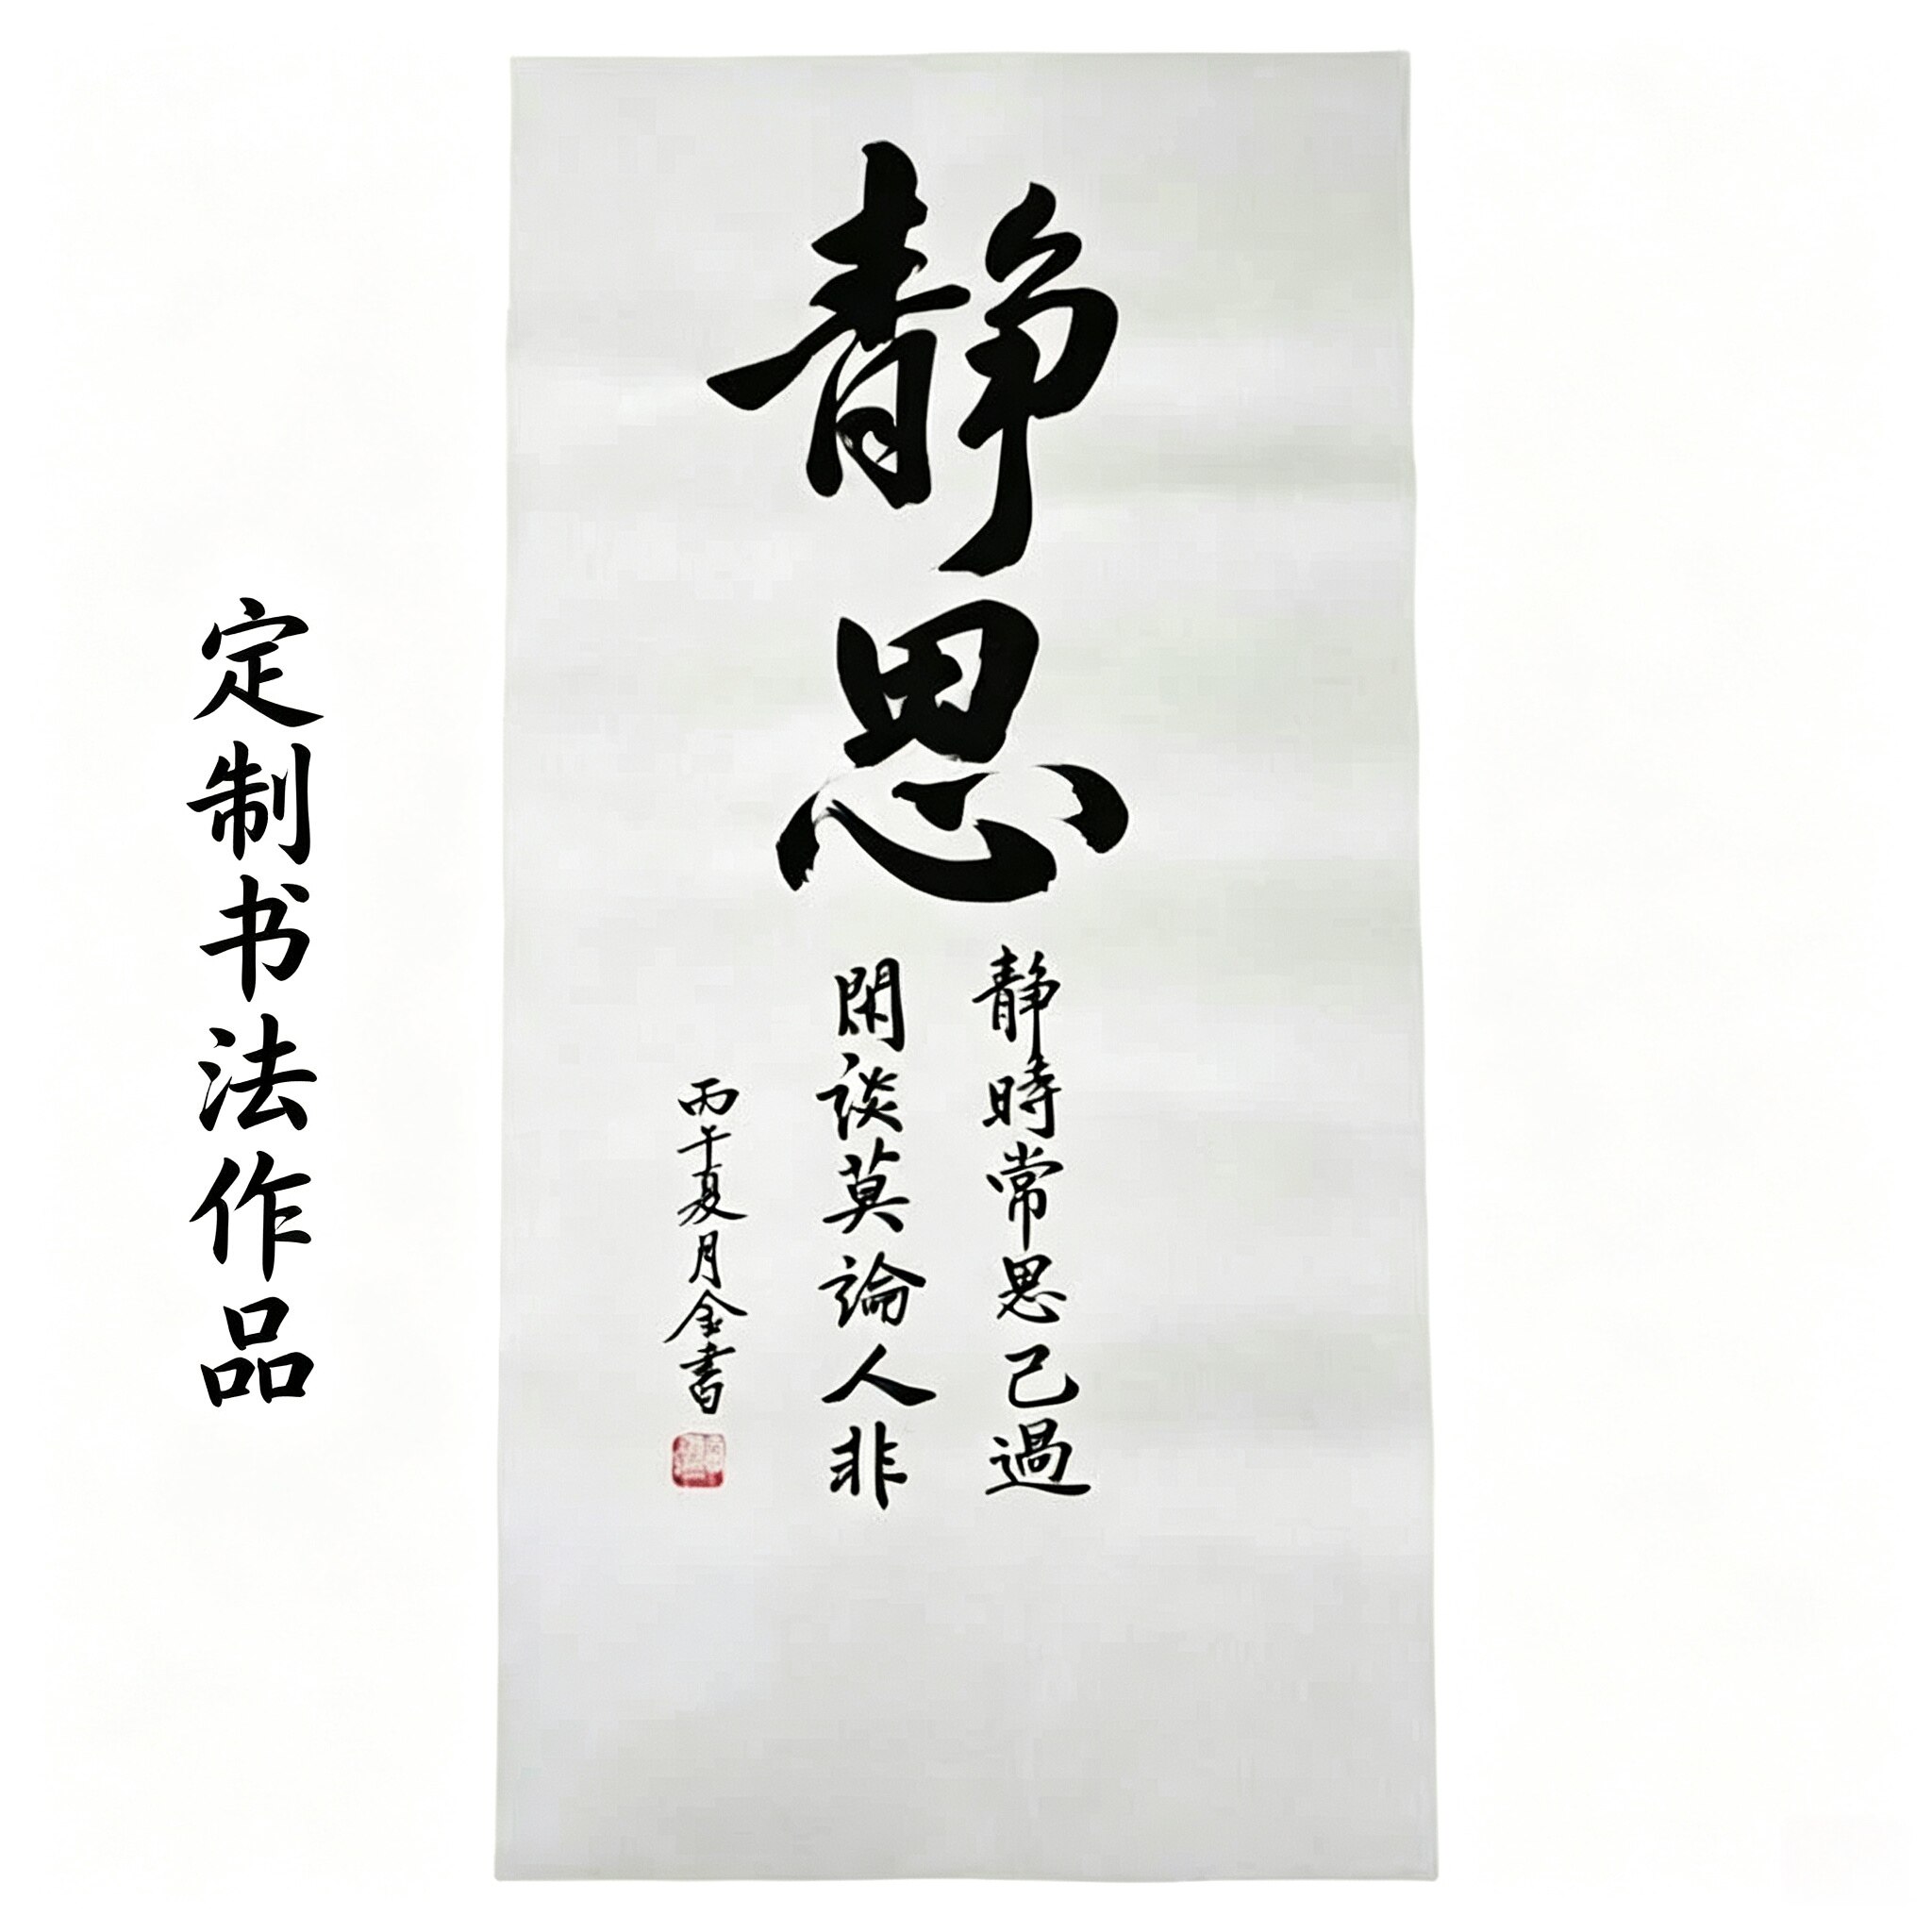 静思
静時常思己過
閑談莫論人非
丙午夏月金書
定制书法作品